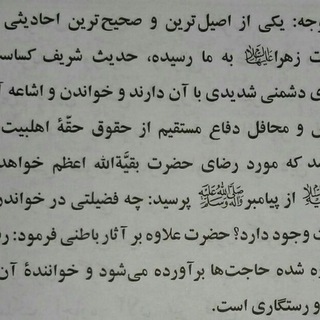 وجه: یکی از اصیل‌ترین و صحیح‌ترین احادیثی
ت زهرا علیهاالسلام به ما رسیده، حدیث شریف کساست
ی دشمنی شدیدی با آن دارند و خواندن و اشاعه آ
س و محافل دفاع مستقیم از حقوق حقّهٔ اهلبیت
د که مورد رضای حضرت بقیّةالله اعظم خواهد
از پیامبر صلی‌الله‌علیه‌وآله‌وسلم پرسید: چه فضیلتی در خواندن
ت وجود دارد؟ حضرت علاوه بر آثار باطنی فرمود: ر
ه شده حاجت‌ها برآورده می‌شود و خوانندهٔ آن
و رستگاری است.